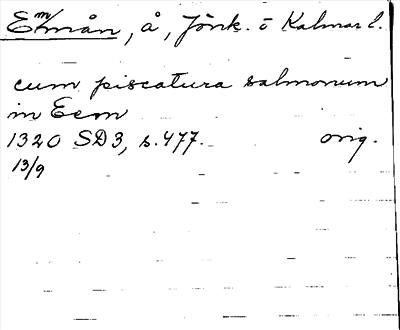 Emmån, å, Jönk. o Kalmar l.
cum piscatura salmonum
in Eem
1320 SD3, s. 477. orig.
13/9